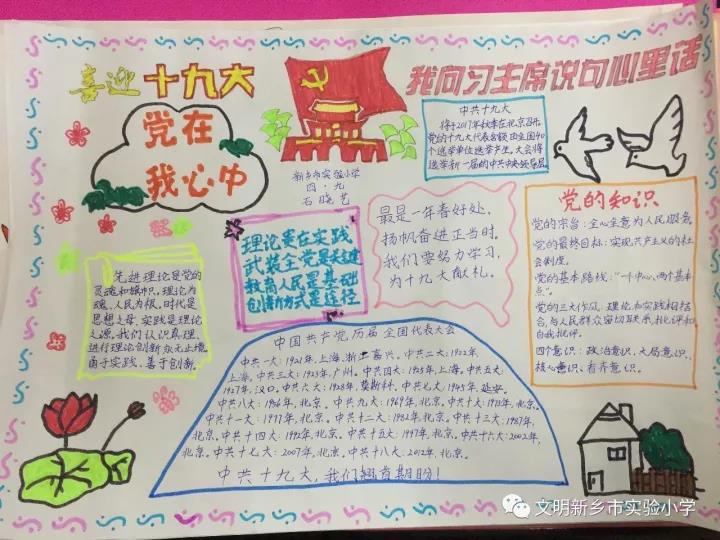 喜迎十九大
我向习主席说句心里话
党在
我心中
新乡市实验小学
四·九
石晓艺
中共十九大
将于2017年秋季在北京召开,
党的十九大代表名额由全国40
个选举单位选举产生。大会将
选举新一届的中共中央领导层。
理论贵在实践
武装全党是关键
教育人民是基础
创新方式是途径
最是一年春好处,
扬帆奋进正当时。
我们要努力学习,
为十九大献礼。
党的知识
党的宗旨:全心全意为人民服务。
党的最终目标:实现共产主义的社
会制度。
党的基本路线:"一个中心、两个基本
点"。
党的三大作风:理论和实践相结
合,与人民群众密切联系,批评和
自我批评。
四个意识:政治意识、大局意识、
核心意识、看齐意识。
先进理论是党的
灵魂和旗帜,理论为
魂,人民为根,时代是
思想之母,实践是理论
之源。我们认识真理,
进行理论创新永无止境,
勇于实践,善于创新。
中国共产党历届全国代表大会
中共一大:1921年,上海,浙江嘉兴。中共二大:1922年,
上海。中共三大:1923年,广州。中共四大:1925年,上海。中共五大:
1927年,汉口。中共六大:1928年,莫斯科。中共七大:1945年,延安。
中共八大:1956年,北京。中共九大:1969年,北京。中共十大:1973年,北京。
中共十一大:1977年,北京。中共十二大:1982年,北京。中共十三大:1987年,
北京。中共十四大:1992年,北京。中共十五大:1997年,北京。中共十六大:2002年,
北京。中共十七大:2007年,北京。中共十八大:2012年,北京。
中共十九大,我们翘首期盼!
文明新乡市实验小学